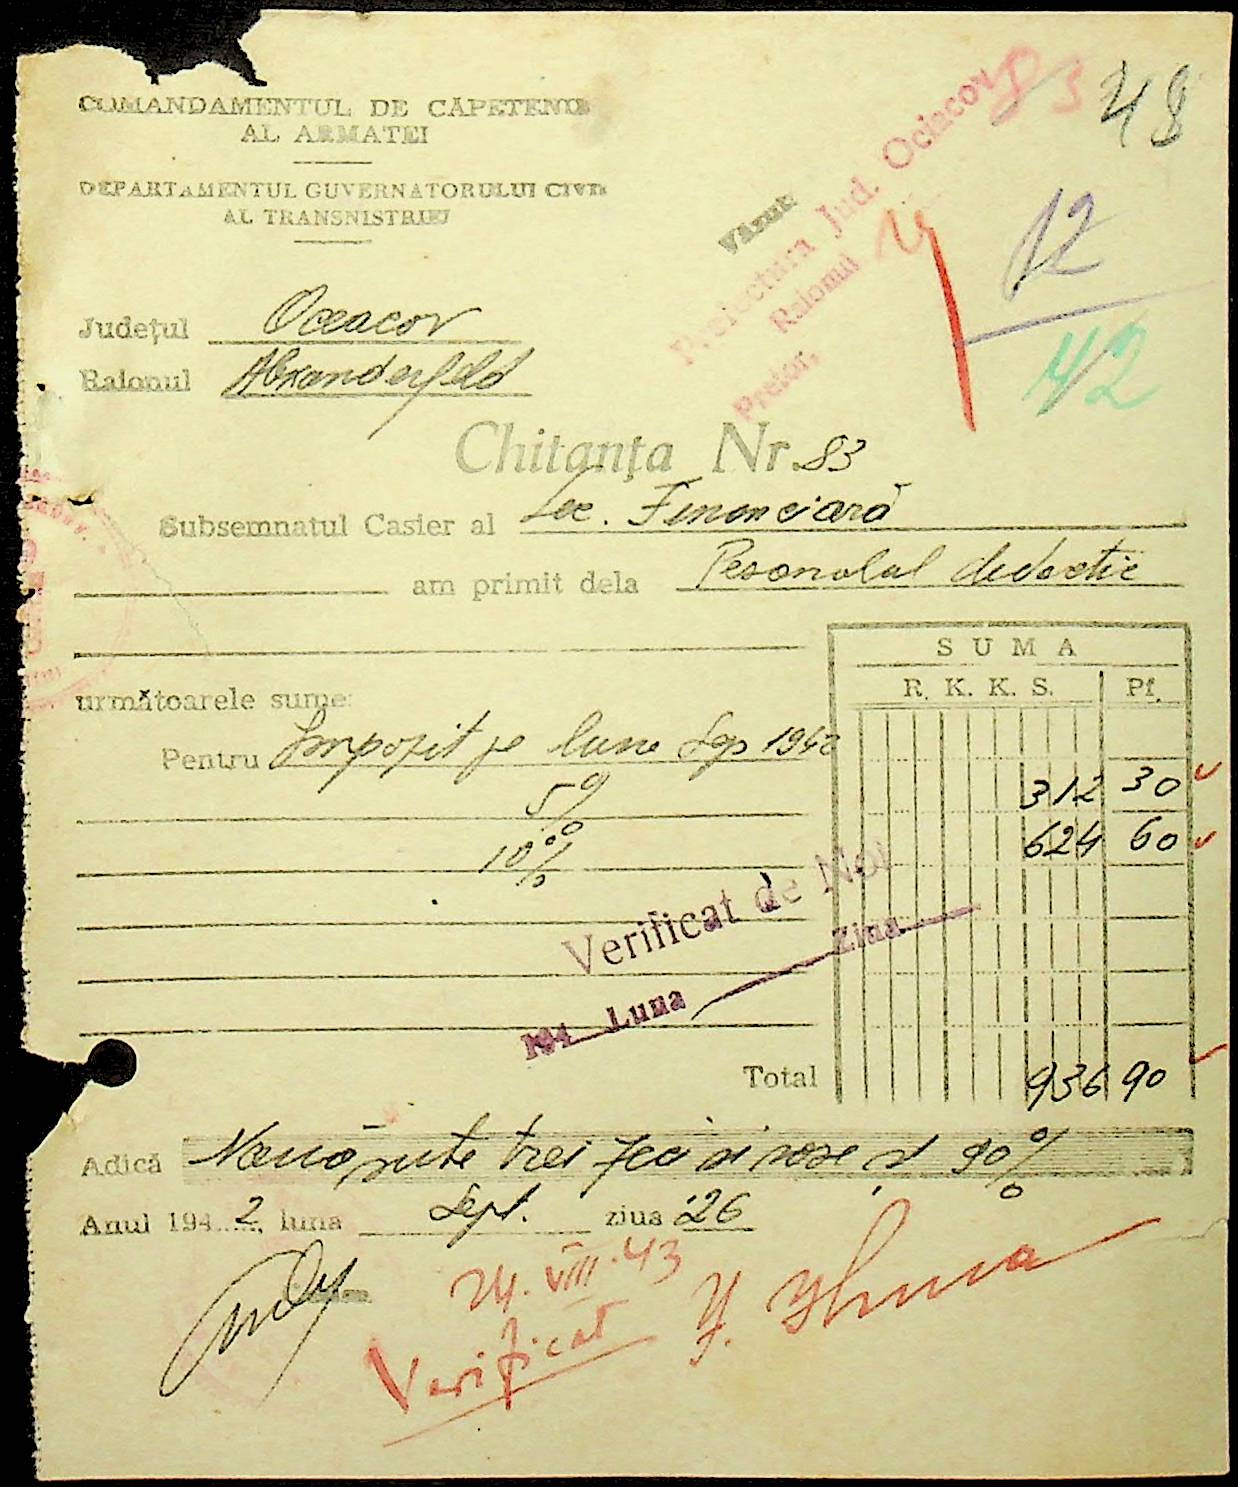 COMANDAMENTUL DE CĂPETENIE
AL ARMATEI
DEPARTAMENTUL GUVERNATORULUI CIVIL
AL TRANSNISTRIEI
83
48
12
42
Văzut
Prefectura Jud. Ociacov
Raionul
Pretor,
Județul Oceacov
Raionul Alexanderfeld
Chitanța Nr. 83
Subsemnatul Casier al Sec. Financiară
am primit dela Pesonalul didactic
SUMA
R. K. K. S. Pf.
următoarele sume:
Pentru Impozit pe luna Sep 1942
5% 312 30
10% 624 60
Verificat de Noi
194 Luna Ziua
Total 936 90
Adică Nouă sute trei zeci si sase si 90%
Anul 1942, luna Sept. ziua 26
24. VIII. 43
Verificat